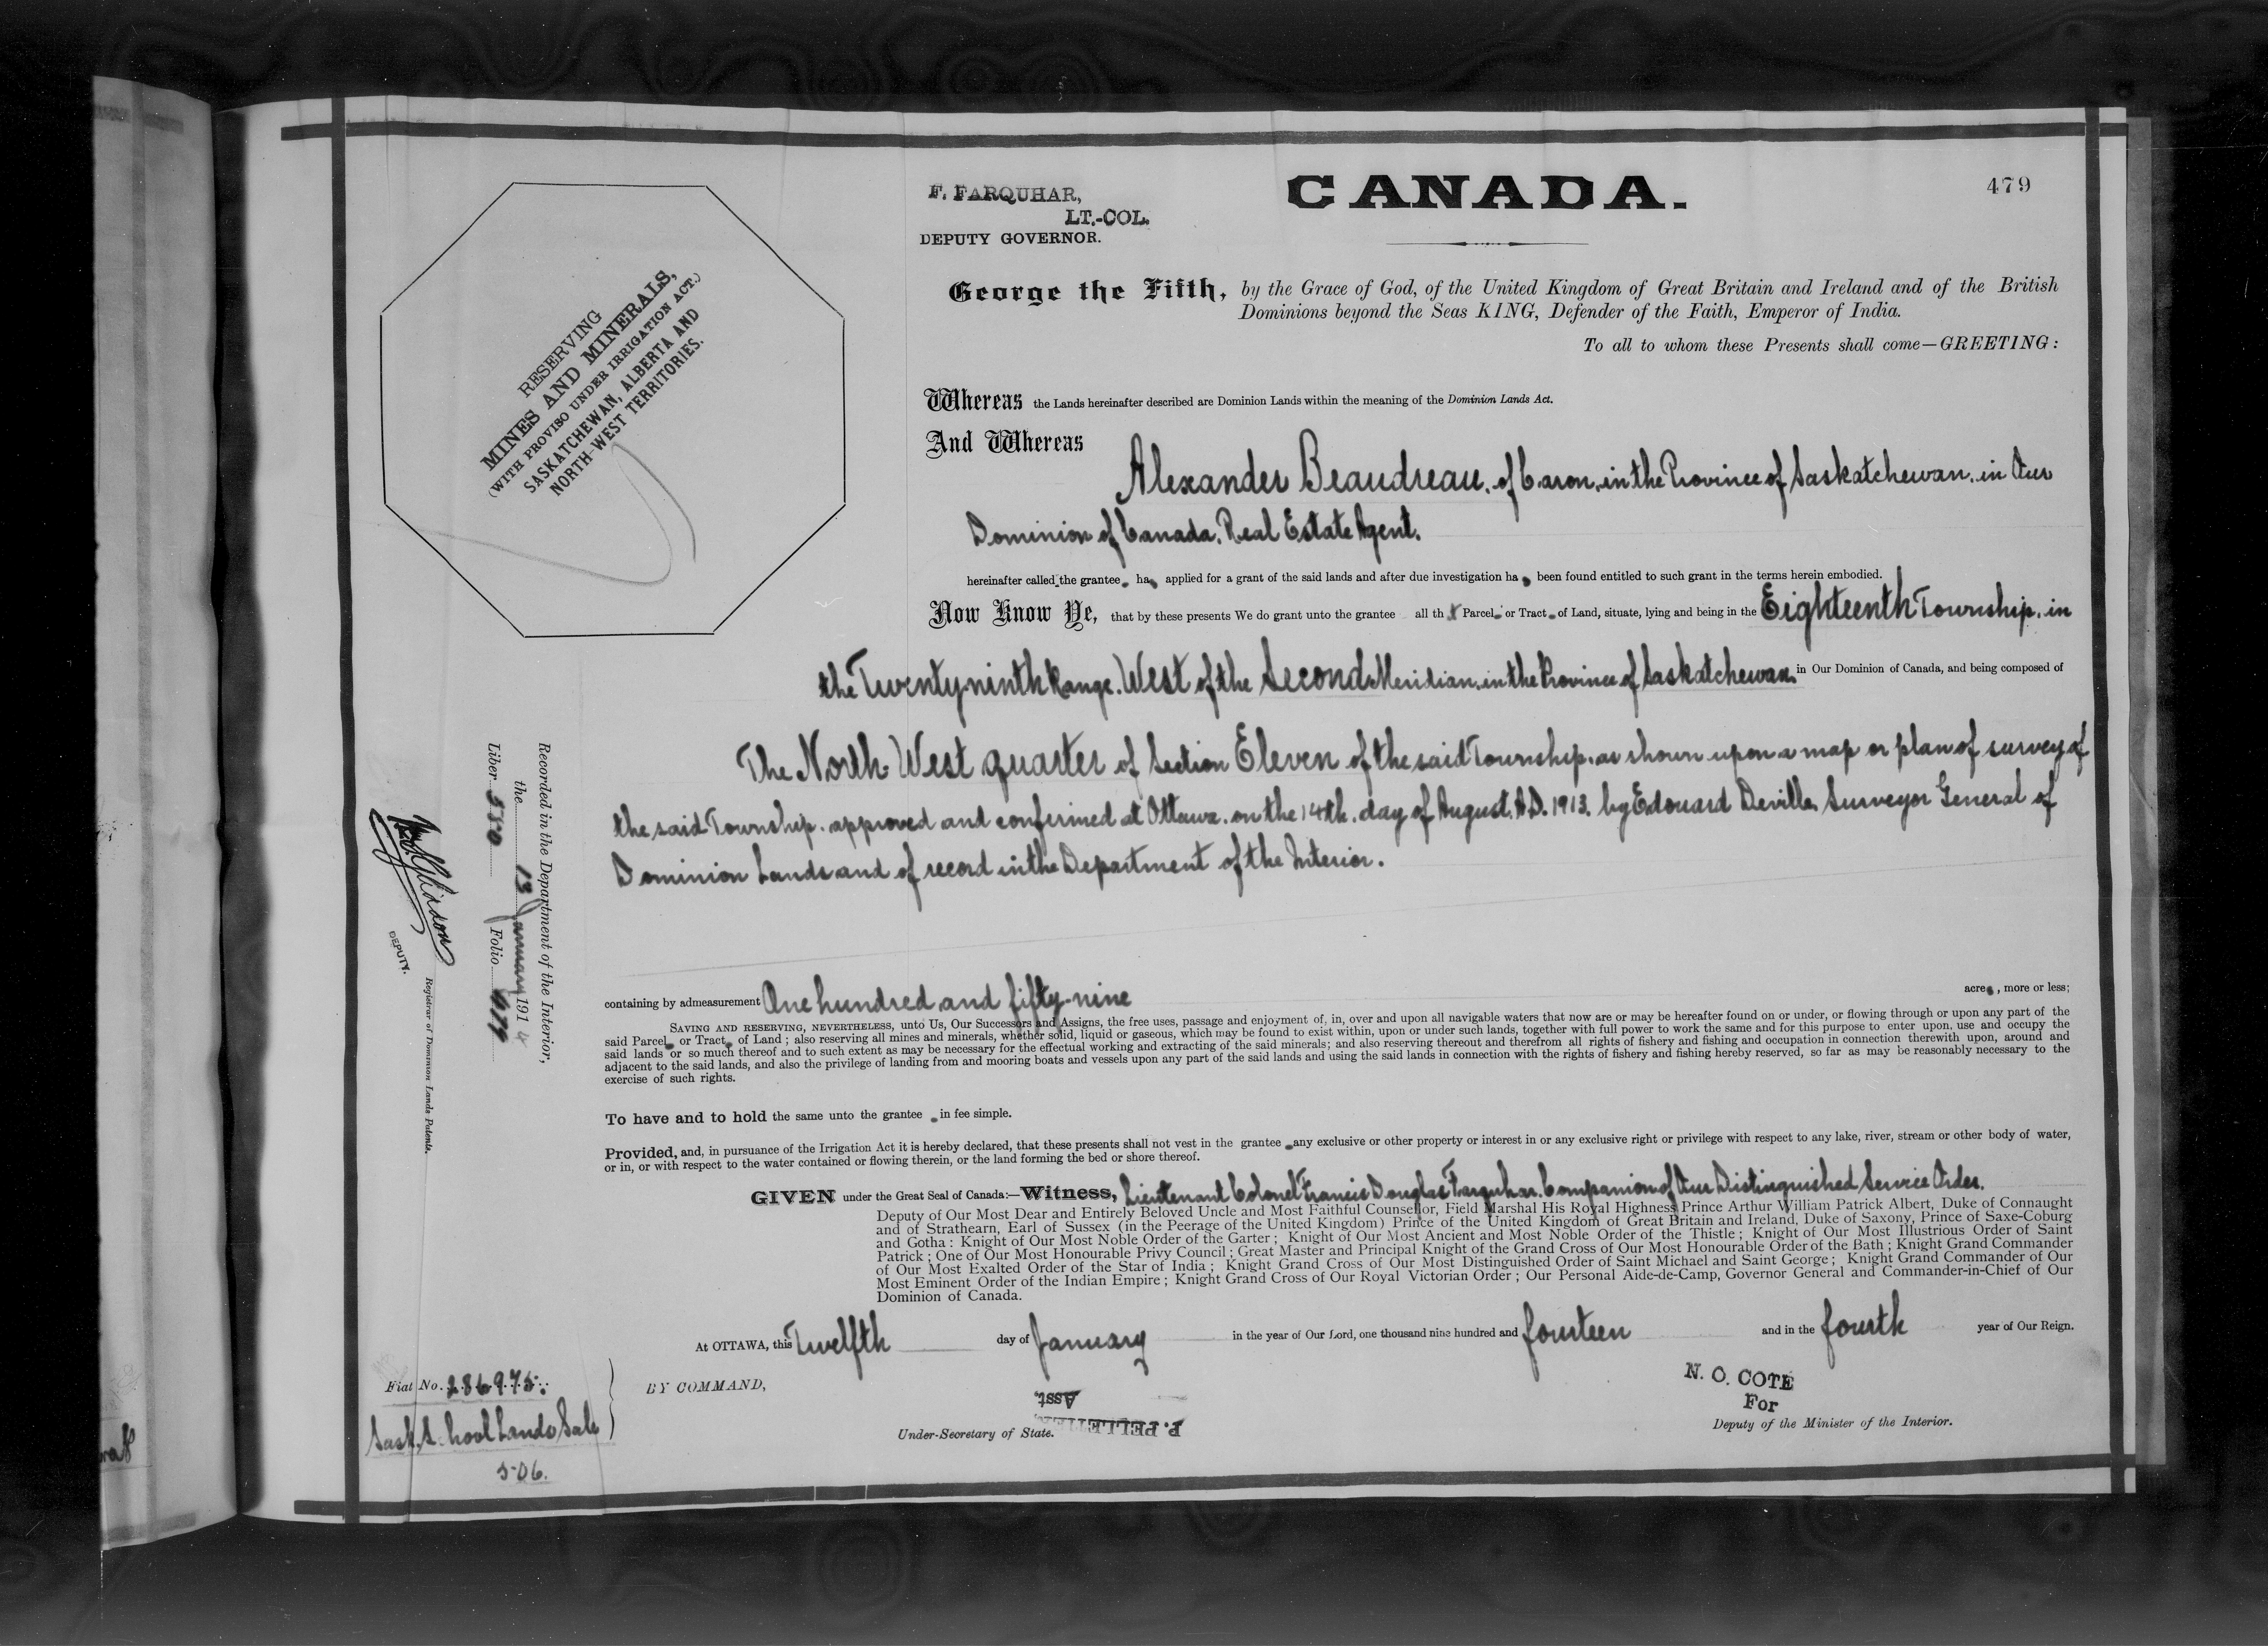 479
F. FARQUHAR,
LT.-COL.
DEPUTY GOVERNOR.
CANADA.
RESERVING
MINES AND MINERALS,
(WITH PROVISO UNDER IRRIGATION ACT.)
SASKATCHEWAN, ALBERTA AND
NORTH-WEST TERRITORIES.
George the Fifth, by the Grace of God, of the United Kingdom of Great Britain and Ireland and of the British
Dominions beyond the Seas KING, Defender of the Faith, Emperor of India.
To all to whom these Presents shall come—GREETING:
Whereas the Lands hereinafter described are Dominion Lands within the meaning of the Dominion Lands Act.
And Whereas
Alexander Beaudreau, of Caron, in the Province of Saskatchewan, in Our
Dominion of Canada, Real Estate Agent.
hereinafter called the grantee ha applied for a grant of the said lands and after due investigation ha been found entitled to such grant in the terms herein embodied.
Now Know Ye, that by these presents We do grant unto the grantee all th t Parcel or Tract of Land, situate, lying and being in the Eighteenth Township, in
the Twenty-ninth Range, West of the Second Meridian, in the Province of Saskatchewan, in Our Dominion of Canada, and being composed of
The North-West quarter of Section Eleven of the said Township, as shown upon a map or plan of survey of
the said Township, approved and confirmed at Ottawa, on the 14th, day of August, A.D. 1913, by Edouard Deville, Surveyor General of
Dominion Lands and of record in the Department of the Interior.
containing by admeasurement One hundred and fifty-nine acres, more or less;
SAVING AND RESERVING, NEVERTHELESS, unto Us, Our Successors and Assigns, the free uses, passage and enjoyment of, in, over and upon all navigable waters that now are or may be hereafter found on or under, or flowing through or upon any part of the
said Parcel or Tract of Land; also reserving all mines and minerals, whether solid, liquid or gaseous, which may be found to exist within, upon or under such lands, together with full power to work the same and for this purpose to enter upon, use and occupy the
said lands or so much thereof and to such extent as may be necessary for the effectual working and extracting of the said minerals; and also reserving thereout and therefrom all rights of fishery and fishing and occupation in connection therewith upon, around and
adjacent to the said lands, and also the privilege of landing from and mooring boats and vessels upon any part of the said lands and using the said lands in connection with the rights of fishery and fishing hereby reserved, so far as may be reasonably necessary to the
exercise of such rights.
To have and to hold the same unto the grantee in fee simple.
Provided, and, in pursuance of the Irrigation Act it is hereby declared, that these presents shall not vest in the grantee any exclusive or other property or interest in or any exclusive right or privilege with respect to any lake, river, stream or other body of water,
or in, or with respect to the water contained or flowing therein, or the land forming the bed or shore thereof.
GIVEN under the Great Seal of Canada:—Witness, Lieutenant Colonel Francis Douglas Farquhar, Companion of Our Distinguished Service Order.
Deputy of Our Most Dear and Entirely Beloved Uncle and Most Faithful Counsellor, Field Marshal His Royal Highness Prince Arthur William Patrick Albert, Duke of Connaught
and of Strathearn, Earl of Sussex (in the Peerage of the United Kingdom) Prince of the United Kingdom of Great Britain and Ireland, Duke of Saxony, Prince of Saxe-Coburg
and Gotha: Knight of Our Most Noble Order of the Garter; Knight of Our Most Ancient and Most Noble Order of the Thistle; Knight of Our Most Illustrious Order of Saint
Patrick; One of Our Most Honourable Privy Council; Great Master and Principal Knight of the Grand Cross of Our Most Honourable Order of the Bath; Knight Grand Commander
of Our Most Exalted Order of the Star of India; Knight Grand Cross of Our Most Distinguished Order of Saint Michael and Saint George; Knight Grand Commander of Our
Most Eminent Order of the Indian Empire; Knight Grand Cross of Our Royal Victorian Order; Our Personal Aide-de-Camp, Governor General and Commander-in-Chief of Our
Dominion of Canada.
At OTTAWA, this Twelfth day of January in the year of Our Lord, one thousand nine hundred and fourteen and in the fourth year of Our Reign.
BY COMMAND,
P. PELLETIER,
Asst.
Under-Secretary of State.
N. O. COTE
For
Deputy of the Minister of the Interior.
Recorded in the Department of the Interior,
the 13 January 1914
Liber 550 Folio 479
DEPUTY.
Registrar of Dominion Lands Patents.
Fiat No. 286975.
Sask. School Lands Sale
506.